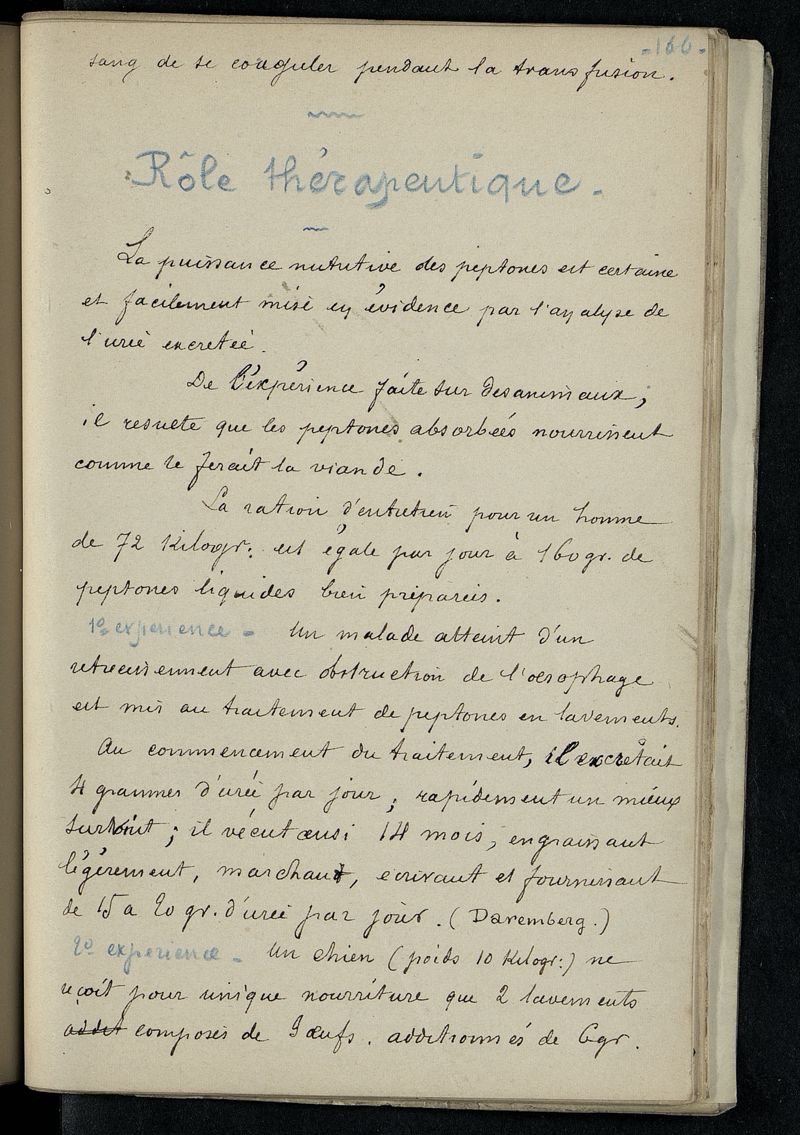 - 166 -
sang de se coaguler pendant la transfusion.
Rôle thérapeutique -
La puissance nutritive des peptones est certaine
et facilement mise en évidence par l'analyse de
l'urée excretée.
De l'expérience faite sur des animaux,
il resulte que les peptones absorbées nourrissent
comme le ferait la viande.
La ration d'entretien pour un homme
de 72 Kilogr: est égale par jour à 160 gr. de
peptones liquides bien préparées.
1º experience - Un malade atteint d'un
retrecissement avec obstruction de l'oesophage
est mis au traitement de peptones en lavements.
Au commencement du traitement, il excrétait
4 grammes d'urée par jour; rapidement un mieux
survint; il vécut ainsi 14 mois, engraissant
légèrement, marchant, ecrivant et fournissant
de 15 a 20 gr. d'urée par jour. (Daremberg.)
2º experience - Un chien (poids 10 Kilogr:) ne
reçoit pour unique nourriture que 2 lavements
addit composés de 3 œufs. additionnés de 6 gr.